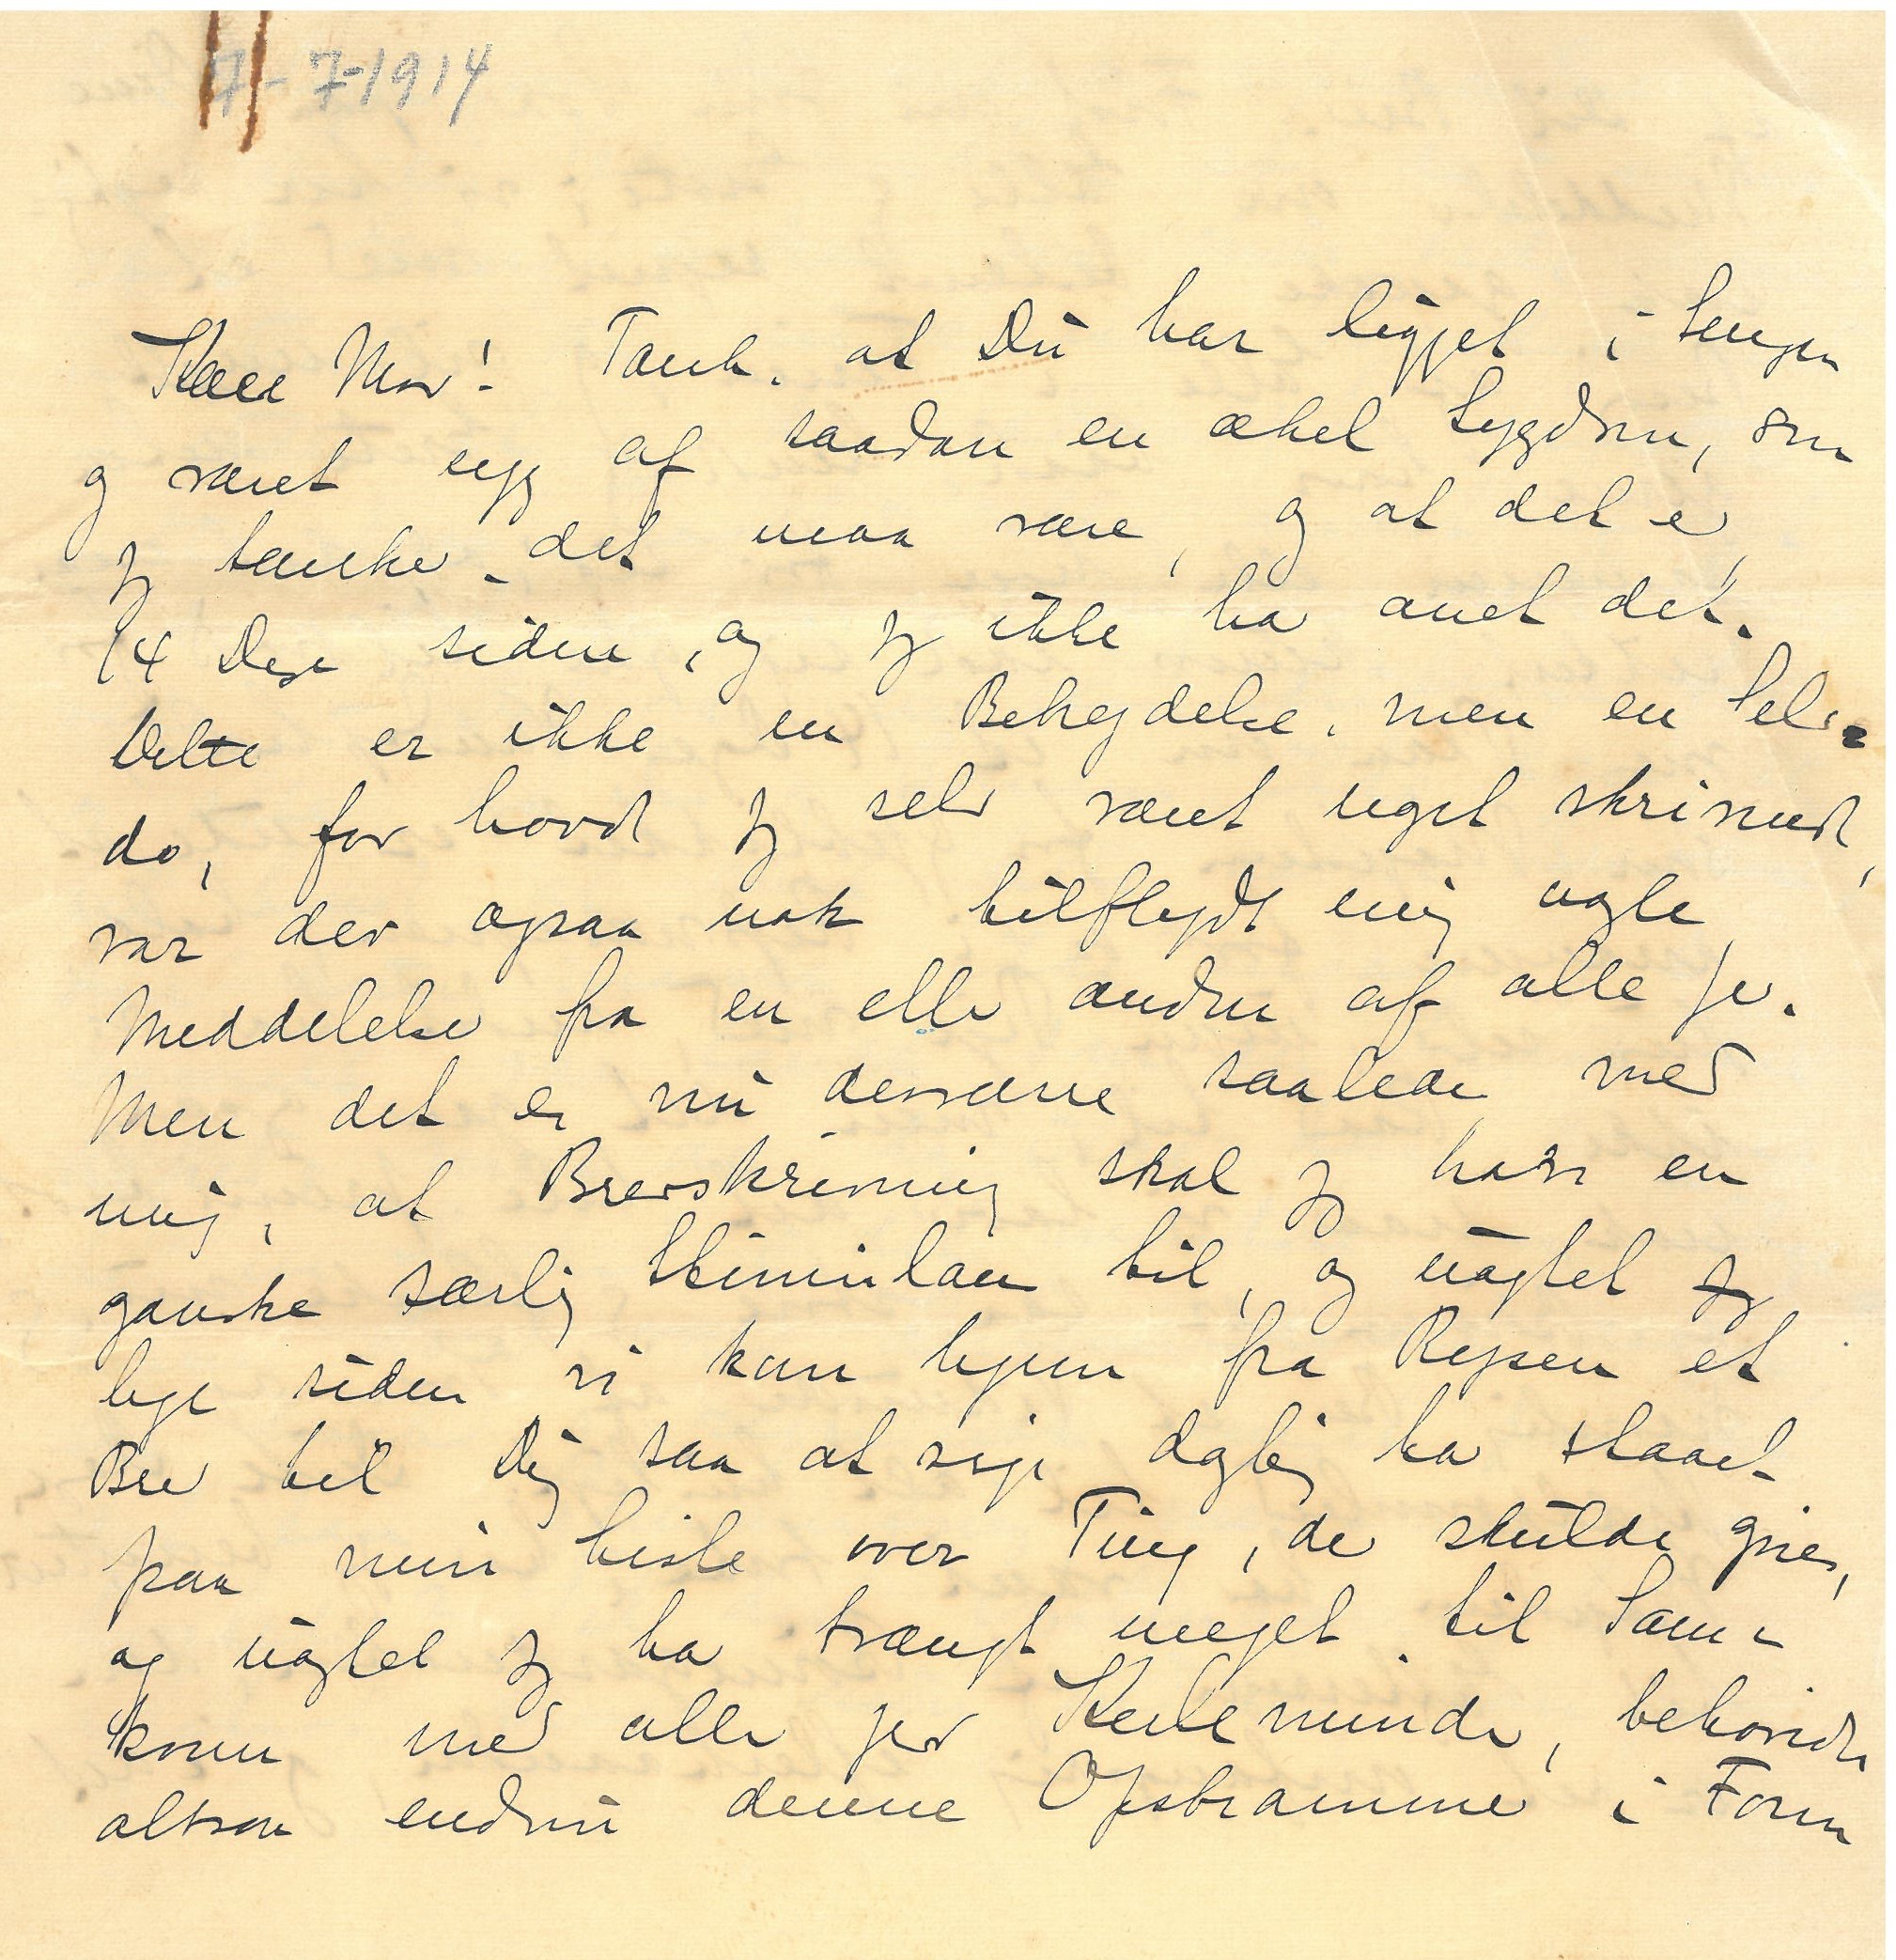 7-7-1914
Kære Mor! Tænk, at Du har ligget i Sengen
og været syg af saadan en ækel Sygdom, som
jeg tænker det maa være, og at det er
14 Dage siden, og jeg ikke har anet det.
Dette er ikke en Bebrejdelse, men en Selv=
do, for havde jeg selv været noget skrivende,
var der ogsaa nok tilflydt mig nogle
Meddelelser fra en eller anden af alle Jer.
Men det er nu desværre saaledes med
mig, at Brevskrivning skal jeg have en
ganske særlig Stimulans til, og uagtet jeg
lige siden vi kom hjem fra Rejsen et
Brev til Dig saa at sige daglig har staaet
paa min Liste over Ting, der skulde gøres,
og uagtet jeg har trængt meget til Sam=
kvem med alle jer Kerteminder, behøvede
altsaa endnu denne Opstrammer i Form